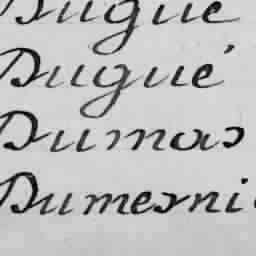 Dugué
Dugué
Dumas
Dumesni